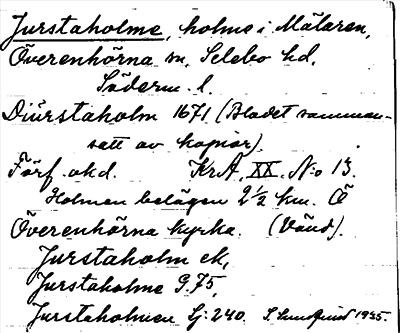 Jurstaholme, holme i Mälaren,
Överenhörna sn, Selebo hd,
Söderm. l.
Diürstaholm 1671 (Bladet samman-
satt av kopior).
Förf. okd. KrA, XX. N:o 13.
Holmen belägen 2 1/2 km. Ö
Överenhörna kyrka. (Vänd).
Jurstaholm ek,
Jurstaholme G.75,
Jurstaholmen Lj: 240. 1935.